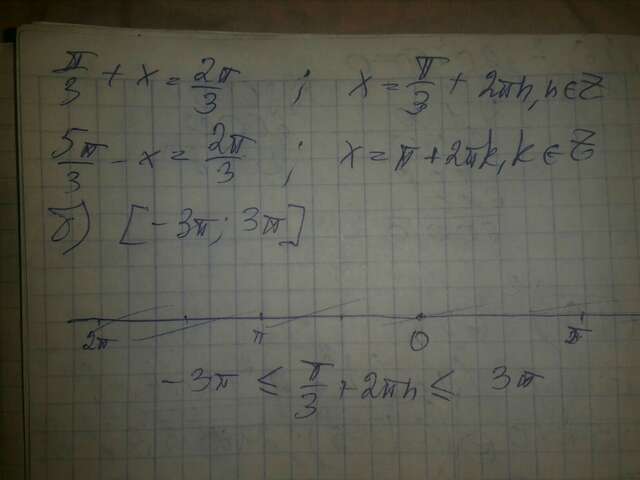 π/3 + x = 2π/3 ; x = π/3 + 2πn, n ∈ Z
5π/3 - x = 2π/3 ; x = π + 2πk, k ∈ Z
б) [-3π; 3π]
2π π 0 π
-3π ≤ π/3 + 2πn ≤ 3π